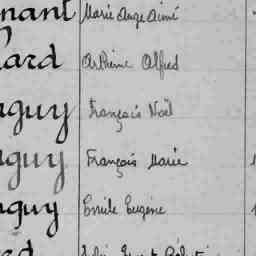 nant Marie Ange Aimé
ard Arthème Alfred
guy François Noël
guy François Marie
guy Emile Eugène